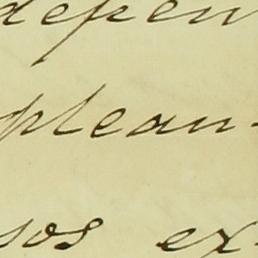 depen
plean-
sos ex-